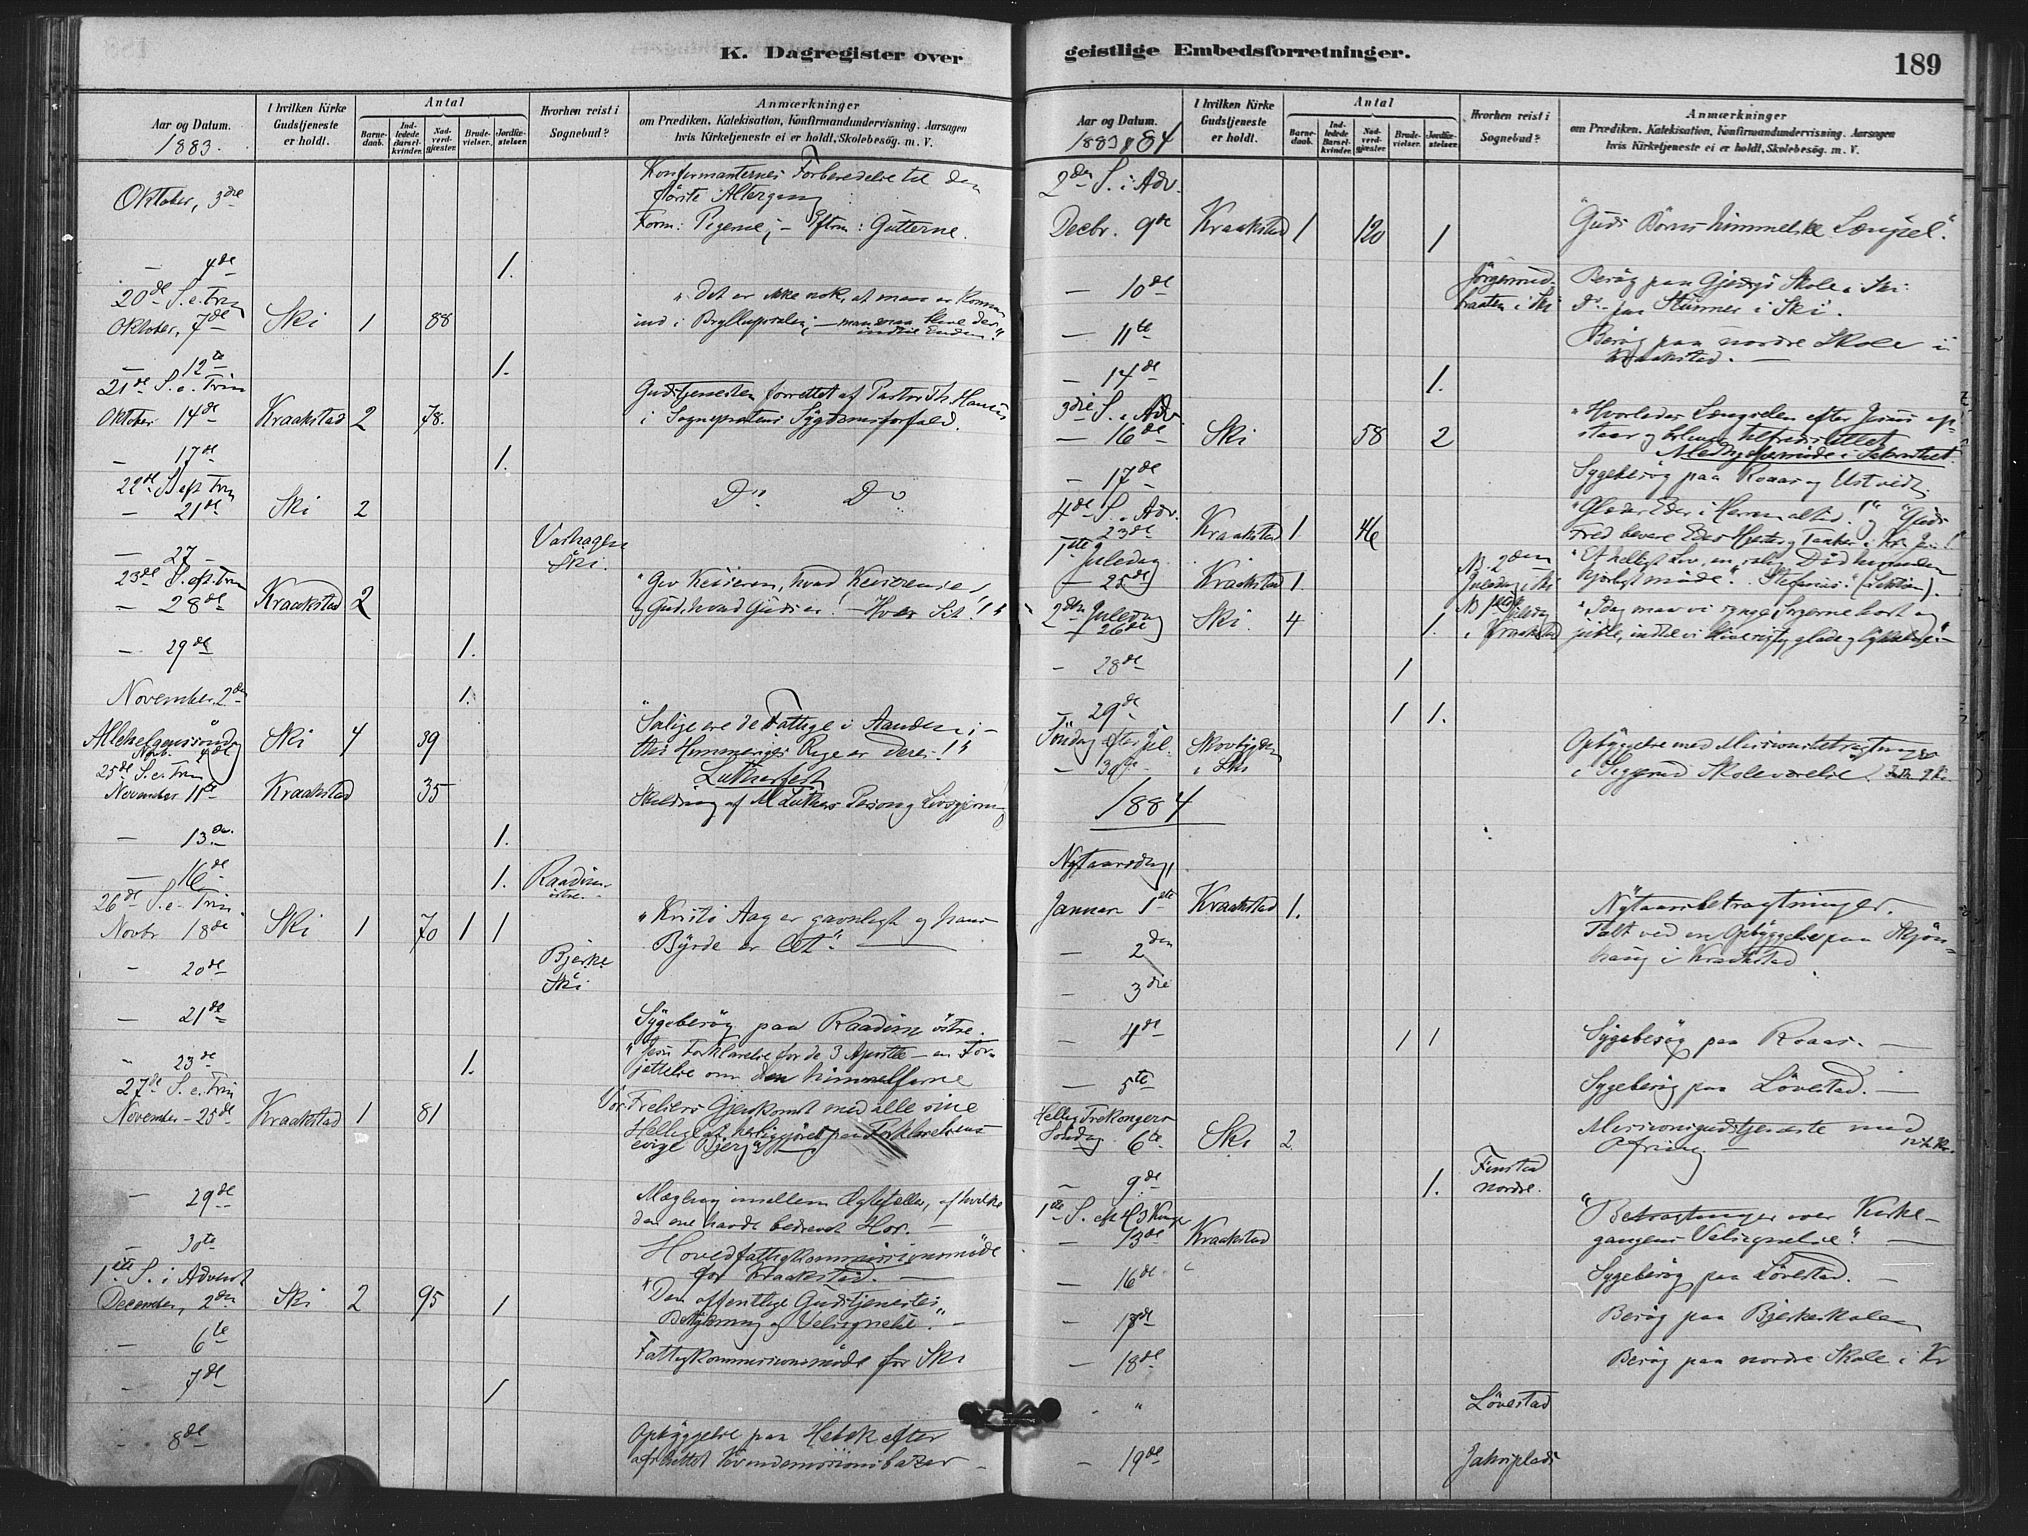 K. Dagregister over
Aar og Datum.
1883.
I hvilken Kirke
Gudstjeneste
er holdt.
Antal
Barne-
daab.
Ind-
ledede
Barsel-
kvinder.
Nad-
verd-
gjæster.
Brude-
vielser.
Jordfæ-
stelser.
Hvorhen reist i
Sognebud?
Anmærkninger
om Prædiken, Katekisation, Konfirmandundervisning. Aarsagen
hvis Kirketjeneste ei er holdt, Skolebesøg. m. V.
Oktober, 3die
Konfirmanternes Forberedelse til den
første Altergang
Form: Pigerne; – Eftm: Gutterne.
— 4de 1.
20de S. e. Trin
Oktober, 7de Ski 1 88
"Det er ikke nok, at man er kommen
ind i Bryllupssalen; – man maa blive der
indtil Enden".
— 12te 1.
21de S. e. Trin
Oktober 14de Kraakstad 2 78.
Gudstjenesten forrettet af Pastor Th. Hansen
i Sognepræstens Sygdomsforfald.
— 17de 1.
22de S. eft Trin
— 21de Ski 2 Do Do
— 27 –
Ski.
23de S. eft. Trin
— 28de Kraakstad 2
"Giv Keiseren, hvad Keiserens er,
og Gud, hvad Guds er! – Hver Sit!"
— 29de 1.
November, 2den 1.
Allehelgenssøndag
Novb. 4de Ski 4 39
"Salige ere de Fattige i Aanden; –
thi Himmeriges Rige er deres!"
25de S. e. Trin
November 11te Kraakstad 35
Lutherfest
Skildring af M. Luthers Person og Livsgjerning
— 13de 1.
— 16de 1. Raadim
østre.
26de S. e. Trin.
Novbr 18de Ski 1 70 1 1
"Kristi Aag er gavnligt og hans
Byrde er let". —
- 20de Bjerke
Ski
— 21de
Sygebesøg paa Raadim østre.
- 23de 1.
"Jesu Forklarelse for de 3 Apostle – en For-
jættelse om den himmelfarne
27de S. e. Trin
November – 25de Kraakstad 1 81
Vor Frelsers Gjenkomst med alle sine
Hellige
evige Bjerg"
— 29de
Mægling imellem Ægtefæller, af hvilke
den ene havde bedrevet Hor. —
— 30te
Hovedfattigkommissionsmøde
for Kraakstad. —
1ste S. i Advent
December, 2den Ski 2 95 1
"Den offentlige Gudstjenestes
Betydning og Velsignelse." –
- 6te
Fattigkommissionsmøde for Ski
- 7de 1
- 8de
Opbyggelse paa Hebek efter
afsluttet Kvindemissionsbazar –
geistlige Embedsforretninger.
189
Aar og Datum.
1883 & 84
I hvilken Kirke
Gudstjeneste
er holdt.
Antal
Barne-
daab.
Ind-
ledede
Barsel-
kvinder.
Nad-
verd-
gjæster.
Brude-
vielser.
Jordfæ-
stelser.
Hvorhen reist i
Sognebud?
Anmærkninger
om Prædiken, Katekisation, Konfirmandundervisning. Aarsagen
hvis Kirketjeneste ei er holdt, Skolebesøg. m. V.
2den S. i Adv.
Decbr. 9de Kraakstad 1 120 1
"Guds Børns himmelske Længsel".
— 10de
i Ski
Besøg paa Gjedsjø Skole i Ski
Do paa Stunner i Ski.
— 11te
Besøg paa nordre Skole i
Kraakstad. —
— 14de 1.
3die S. i Adv.
— 16de Ski 58 2
"Hvorledes Længselen efter Jesus op-
staar og bliver tilfredsstillet
— 17de
Sygebesøg paa Roaas og Ustvedt.
4de S. i Adv.
23de Kraakstad 1 46
"Glæder Eder i Herren altid!" "Guds
Fred bevare Eders Hjerter og Tanker i Kr. Jesu!"
1ste Juledag
— 25de Kraakstad 1.
NB. 2den
Juledag i Ski
"Et helligt Liv, en salig Død
2den Juledag
26de Ski. 4 1.
i Kraakstad
- 28de 1
— 29de 1 1.
Søndag efter Jul
- 30te Skovbygden
i Ski
Opbyggelse med Missionsbetragtninger
i Siggerud Skoleværelse.
1884
Nytaarsdag
Januar 1ste Kraakstad 1.
Nytaarsbetragtninger.
— 2den
Talt ved en Opbyggelse paa Skjøn-
haug i Kraakstad
— 3die
— 4de 1 1
Sygebesøg paa Roaas. —
— 5te
Sygebesøg paa Løvestad. —
Hellig Trekongers
Søndag 6te Ski 2.
Missionsgudstjeneste med
Ofring. —
— 9de 1. Finstad
nordre.
1ste S. eft H 3 Kong.
— 13de Kraakstad
"Betragtninger over Kirke-
gangens Velsignelse". —
— 16de
Sygebesøg paa Løvestad. —
— 17de
Besøg paa Bjerkeskolen
— 18de
Besøg paa nordre Skole i Kr
- " Løvestad
- 19de